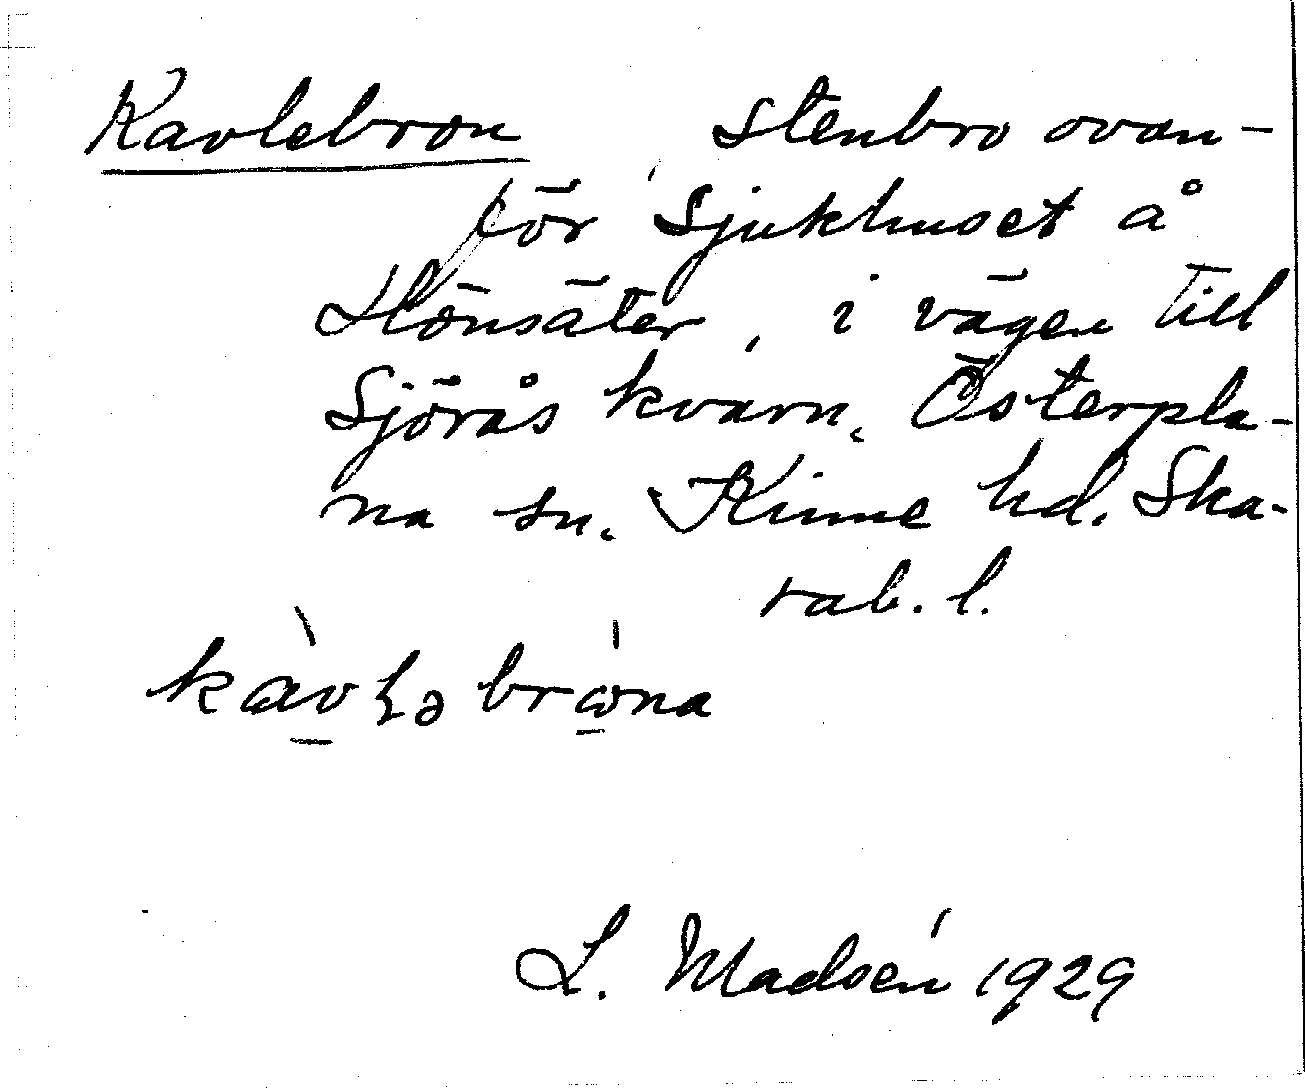 Kavlebron stenbro ovan-
för Sjukhuset å
Hönsäter, i vägen till
Sjörås kvarn. Österpla-
na sn. Kinne hd. Ska-
rab. l.
L. Madsén 1929